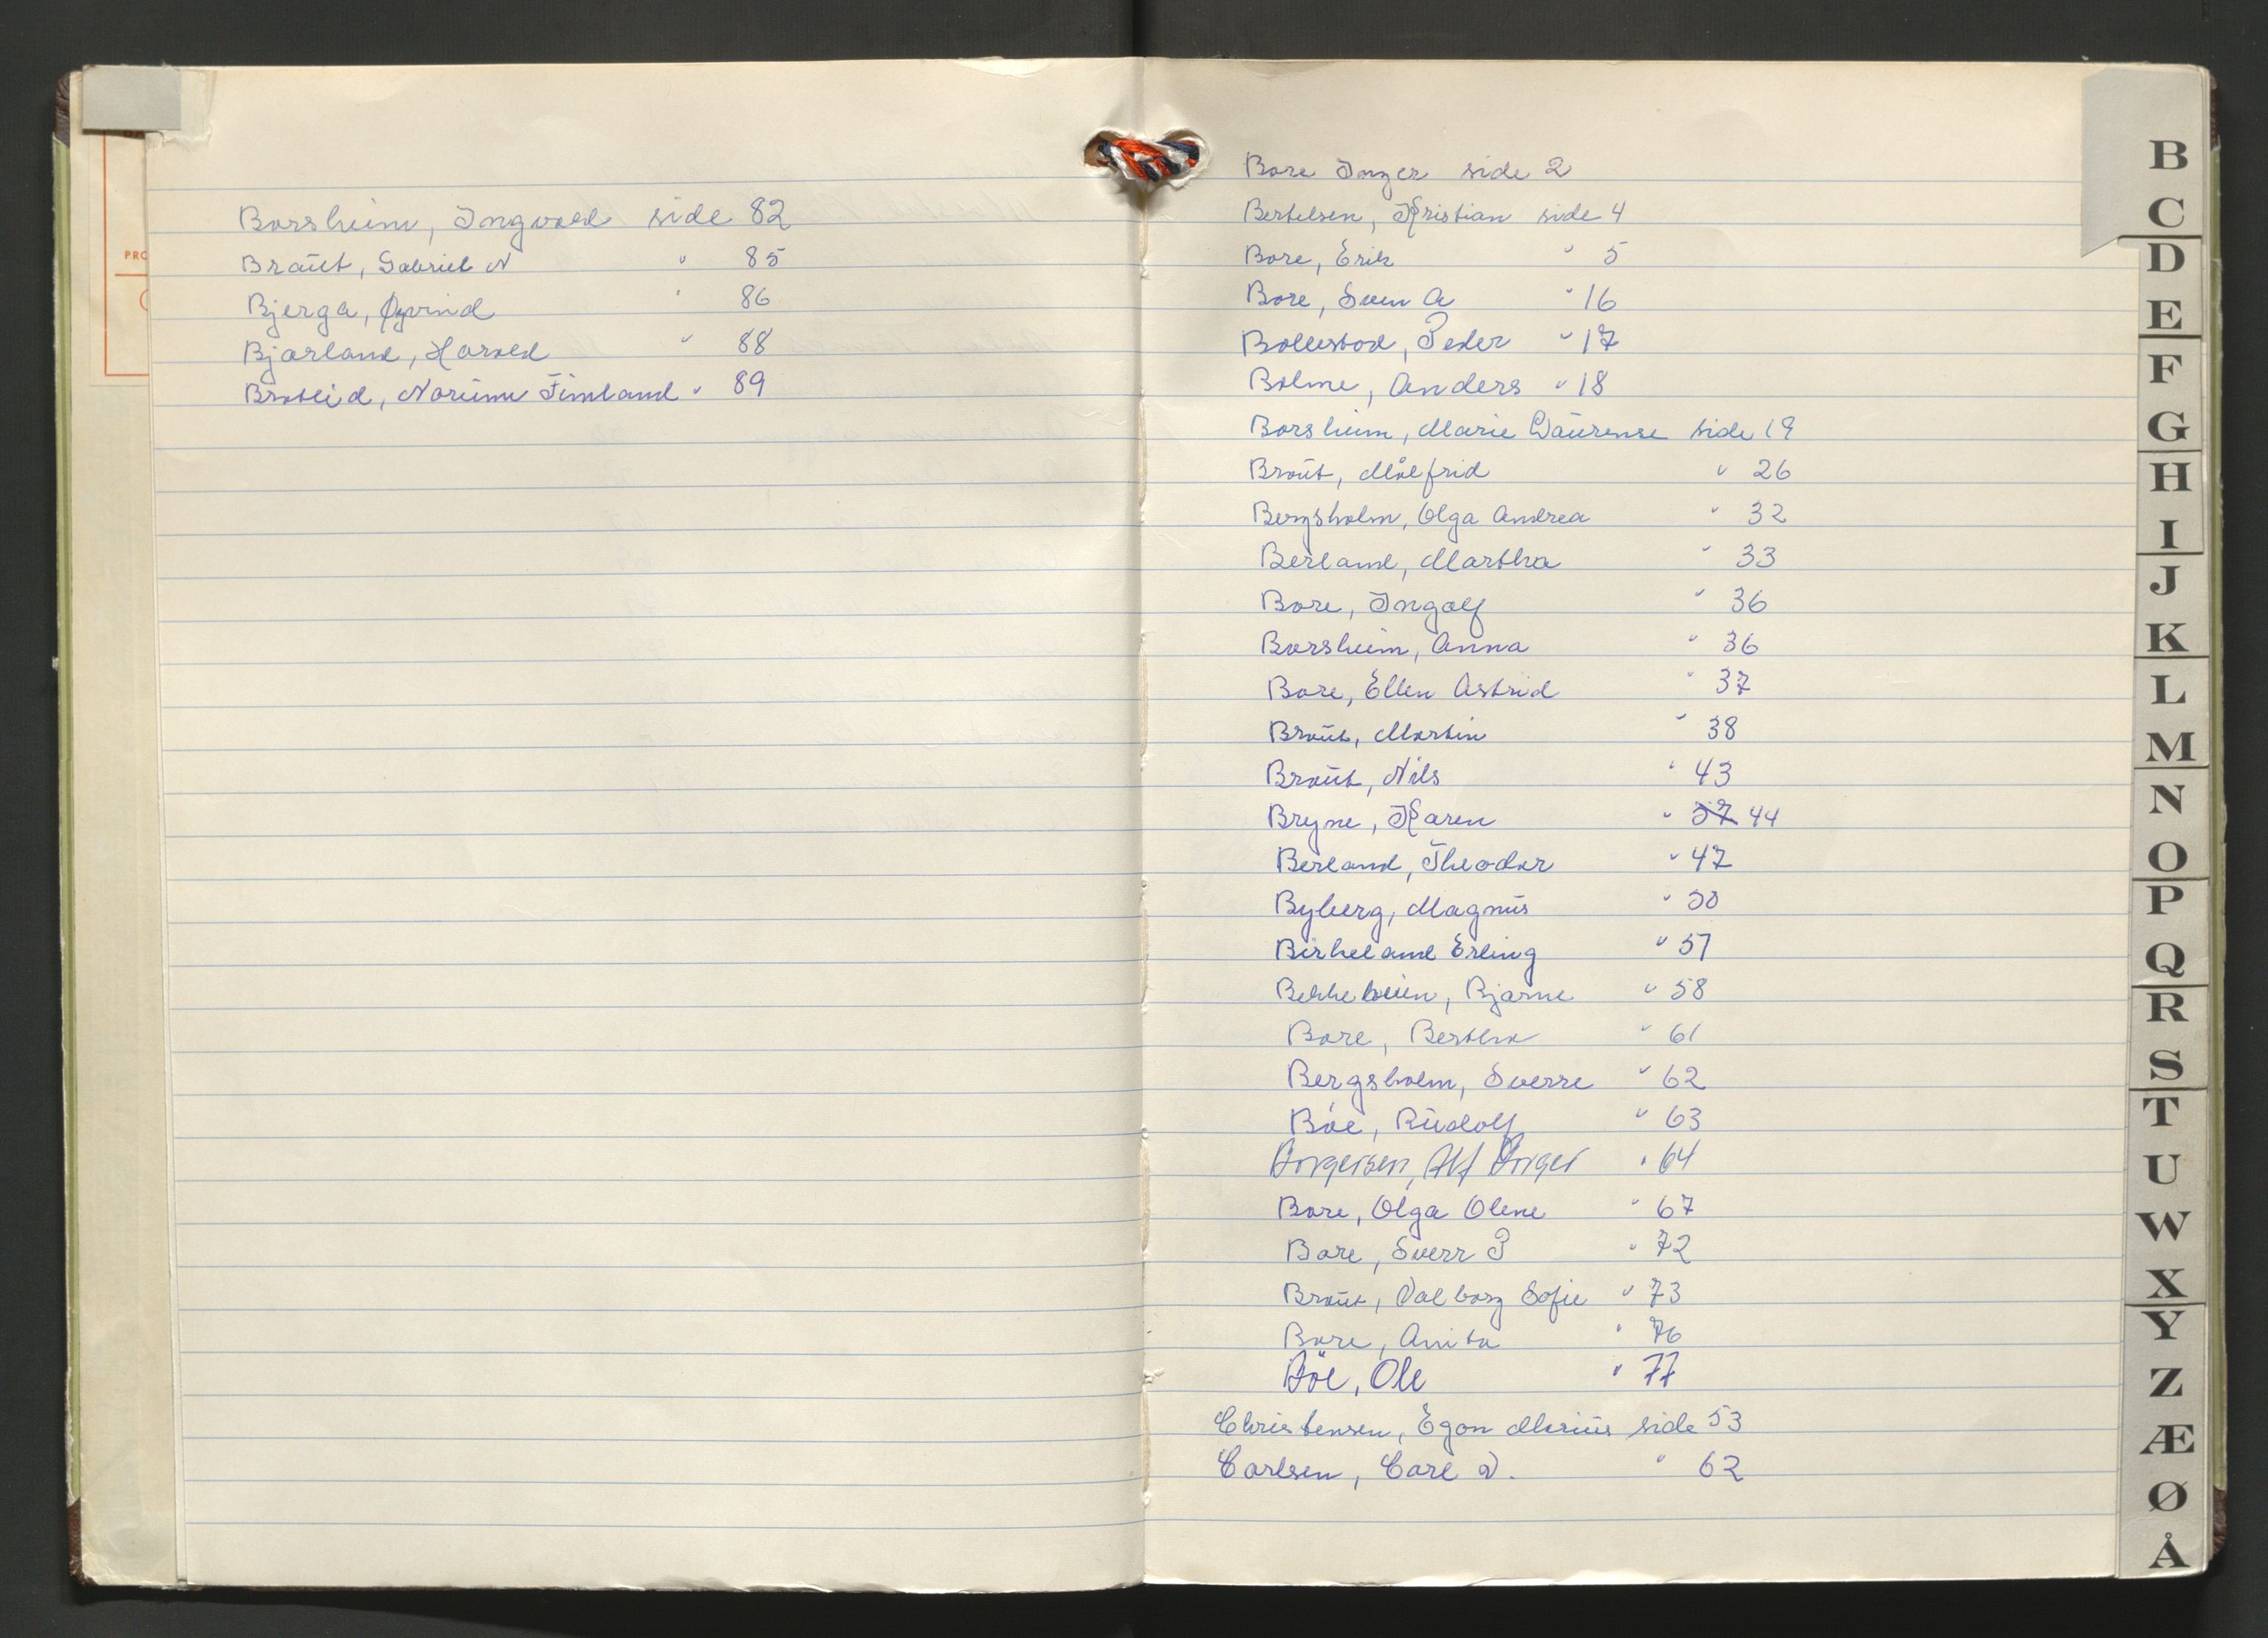 PRO
Borsheim, Ingvald side 82
Braut, Gabriel N " 85
Bjerga, Øyvind " 86
Bjørland, Harald " 88
Brotlid, Norunn Timland " 89
Bore Inger side 2
Bertelsen, Kristian side 4
Bore, Erik " 5
Bore, Sven A " 16
Bollestad, Peder " 17
Bolme, Anders " 18
Borsheim, Marie Laurense side 19
Braut, Målfrid " 26
Bergsholm, Olga Andrea " 32
Berland, Martha " 33
Bore, Ingolf " 36
Borsheim, Anna " 36
Bore, Ellen Astrid " 37
Braut, Martin " 38
Braut, Nils " 43
Bryne, Karen " 57 44
Berland, Theodor " 47
Byberg, Magnus " 50
Birkeland Erling " 57
Bekkeheien, Bjarne " 58
Bore, Bertha " 61
Bergsholm, Sverre " 62
Bøe, Rudolf " 63
Borgersen, Alf Birger " 64
Bore, Olga Olene " 67
Bore, Sverr P " 72
Braut, Valborg Sofie " 73
Bore, Anita " 76
Böe, Ole " 77
Christensen, Egon Marius side 53
Carlsen, Carl V. " 62
B
C
D
E
F
G
H
I
J
K
L
M
N
O
P
Q
R
S
T
U
W
X
Y
Z
Æ
Ø
Å